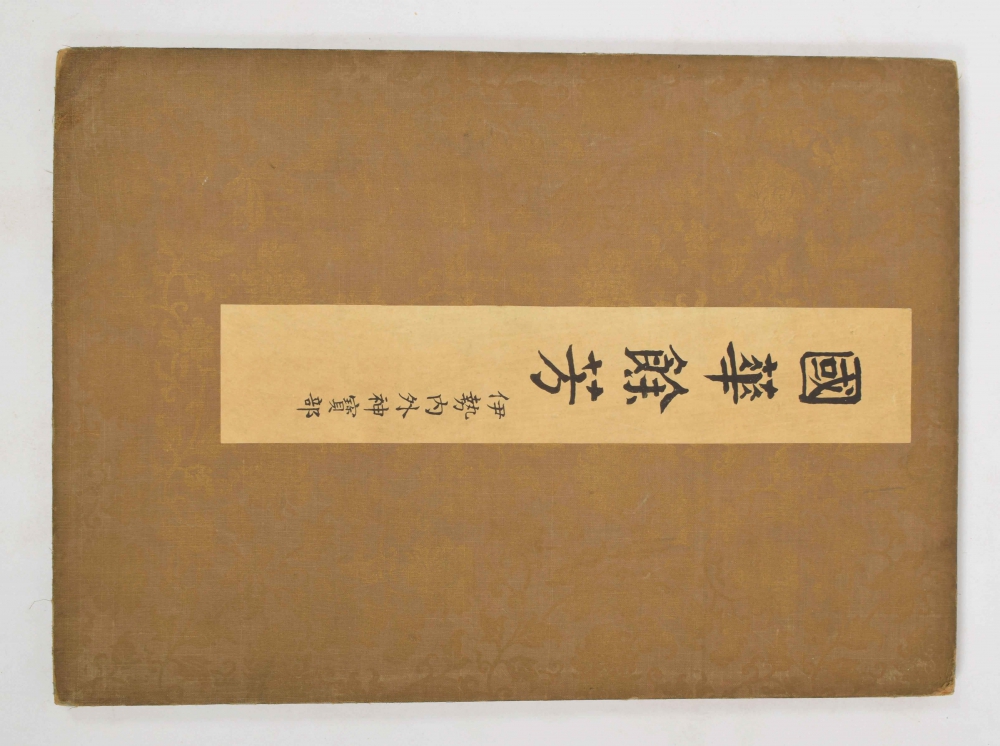 國華餘芳
伊勢内外神寳部